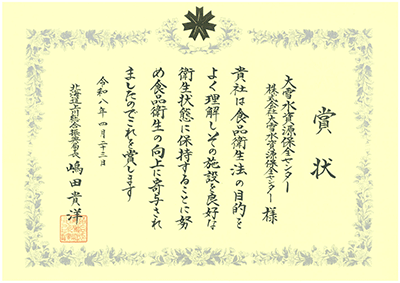 賞状
大雪水資源保全センター
株式会社大雪水資源保全センター 様
貴社は食品衛生法の目的を
よく理解しその施設を良好な
衛生状態に保持することに努
め食品衛生の向上に寄与され
ましたのでこれを賞します
令和八年四月二十三日
北海道上川総合振興局長 嶋田貴洋